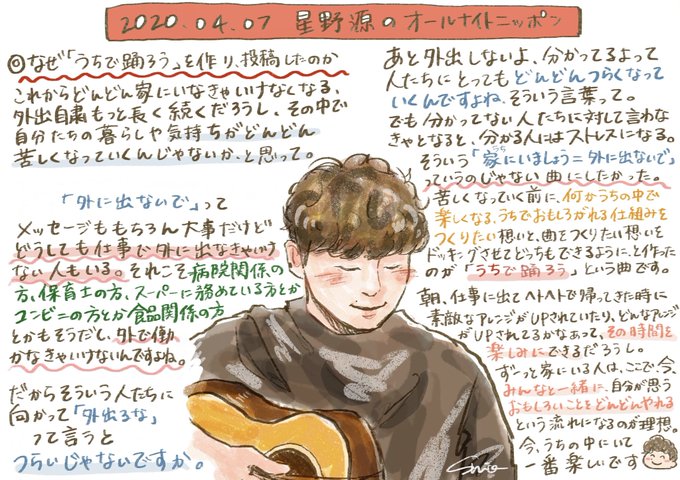 2020.04.07 星野源のオールナイトニッポン
◎なぜ「うちで踊ろう」を作り、投稿したのか
これからどんどん家にいなきゃいけなくなる、
外出自粛もっと長く続くだろうし、その中で
自分たちの暮らしや気持ちがどんどん
苦しくなっていくんじゃないか、と思って。
「外に出ないで」って
メッセージももちろん大事だけど
どうしても仕事で外に出なきゃいけ
ない人もいる。それこそ病院関係の
方、保育士の方、スーパーに務めている方とか
コンビニの方とか食品関係の方
とかもそうだし、外で働
かなきゃいけないんですよね。
だからそういう人たちに
向かって「外出るな」
って言うと
つらいじゃないですか。
あと外出しないよ、分かってるよって
人たちにとってもどんどんつらくなって
いくんですよね、そういう言葉って。
でも分かってない人たちに対して言わな
きゃとなると、分かる人にはストレスになる。
そういう「家にいましょう=外に出ないで」
うち
っていうのじゃない曲にしたかった。
苦しくなっていく前に、何かうちの中で
楽しくなる、うちでおもしろがれる仕組みを
つくりたい想いと、曲をつくりたい想いを
ドッキングさせてどっちもできるように、と作った
のが「うちで踊ろう」という曲です。
朝、仕事に出てヘトヘトで帰ってきた時に
素敵なアレンジがUPされていたり、どんなアレンジ
がUPされてるかなぁって、その時間を
楽しみにできるだろうし。
ずっと家にいる人は、ここで、今、
みんなと一緒に、自分が思う
おもしろいことをどんどんやれる
という流れになるのが理想。
今、うちの中にいて
一番楽しいです